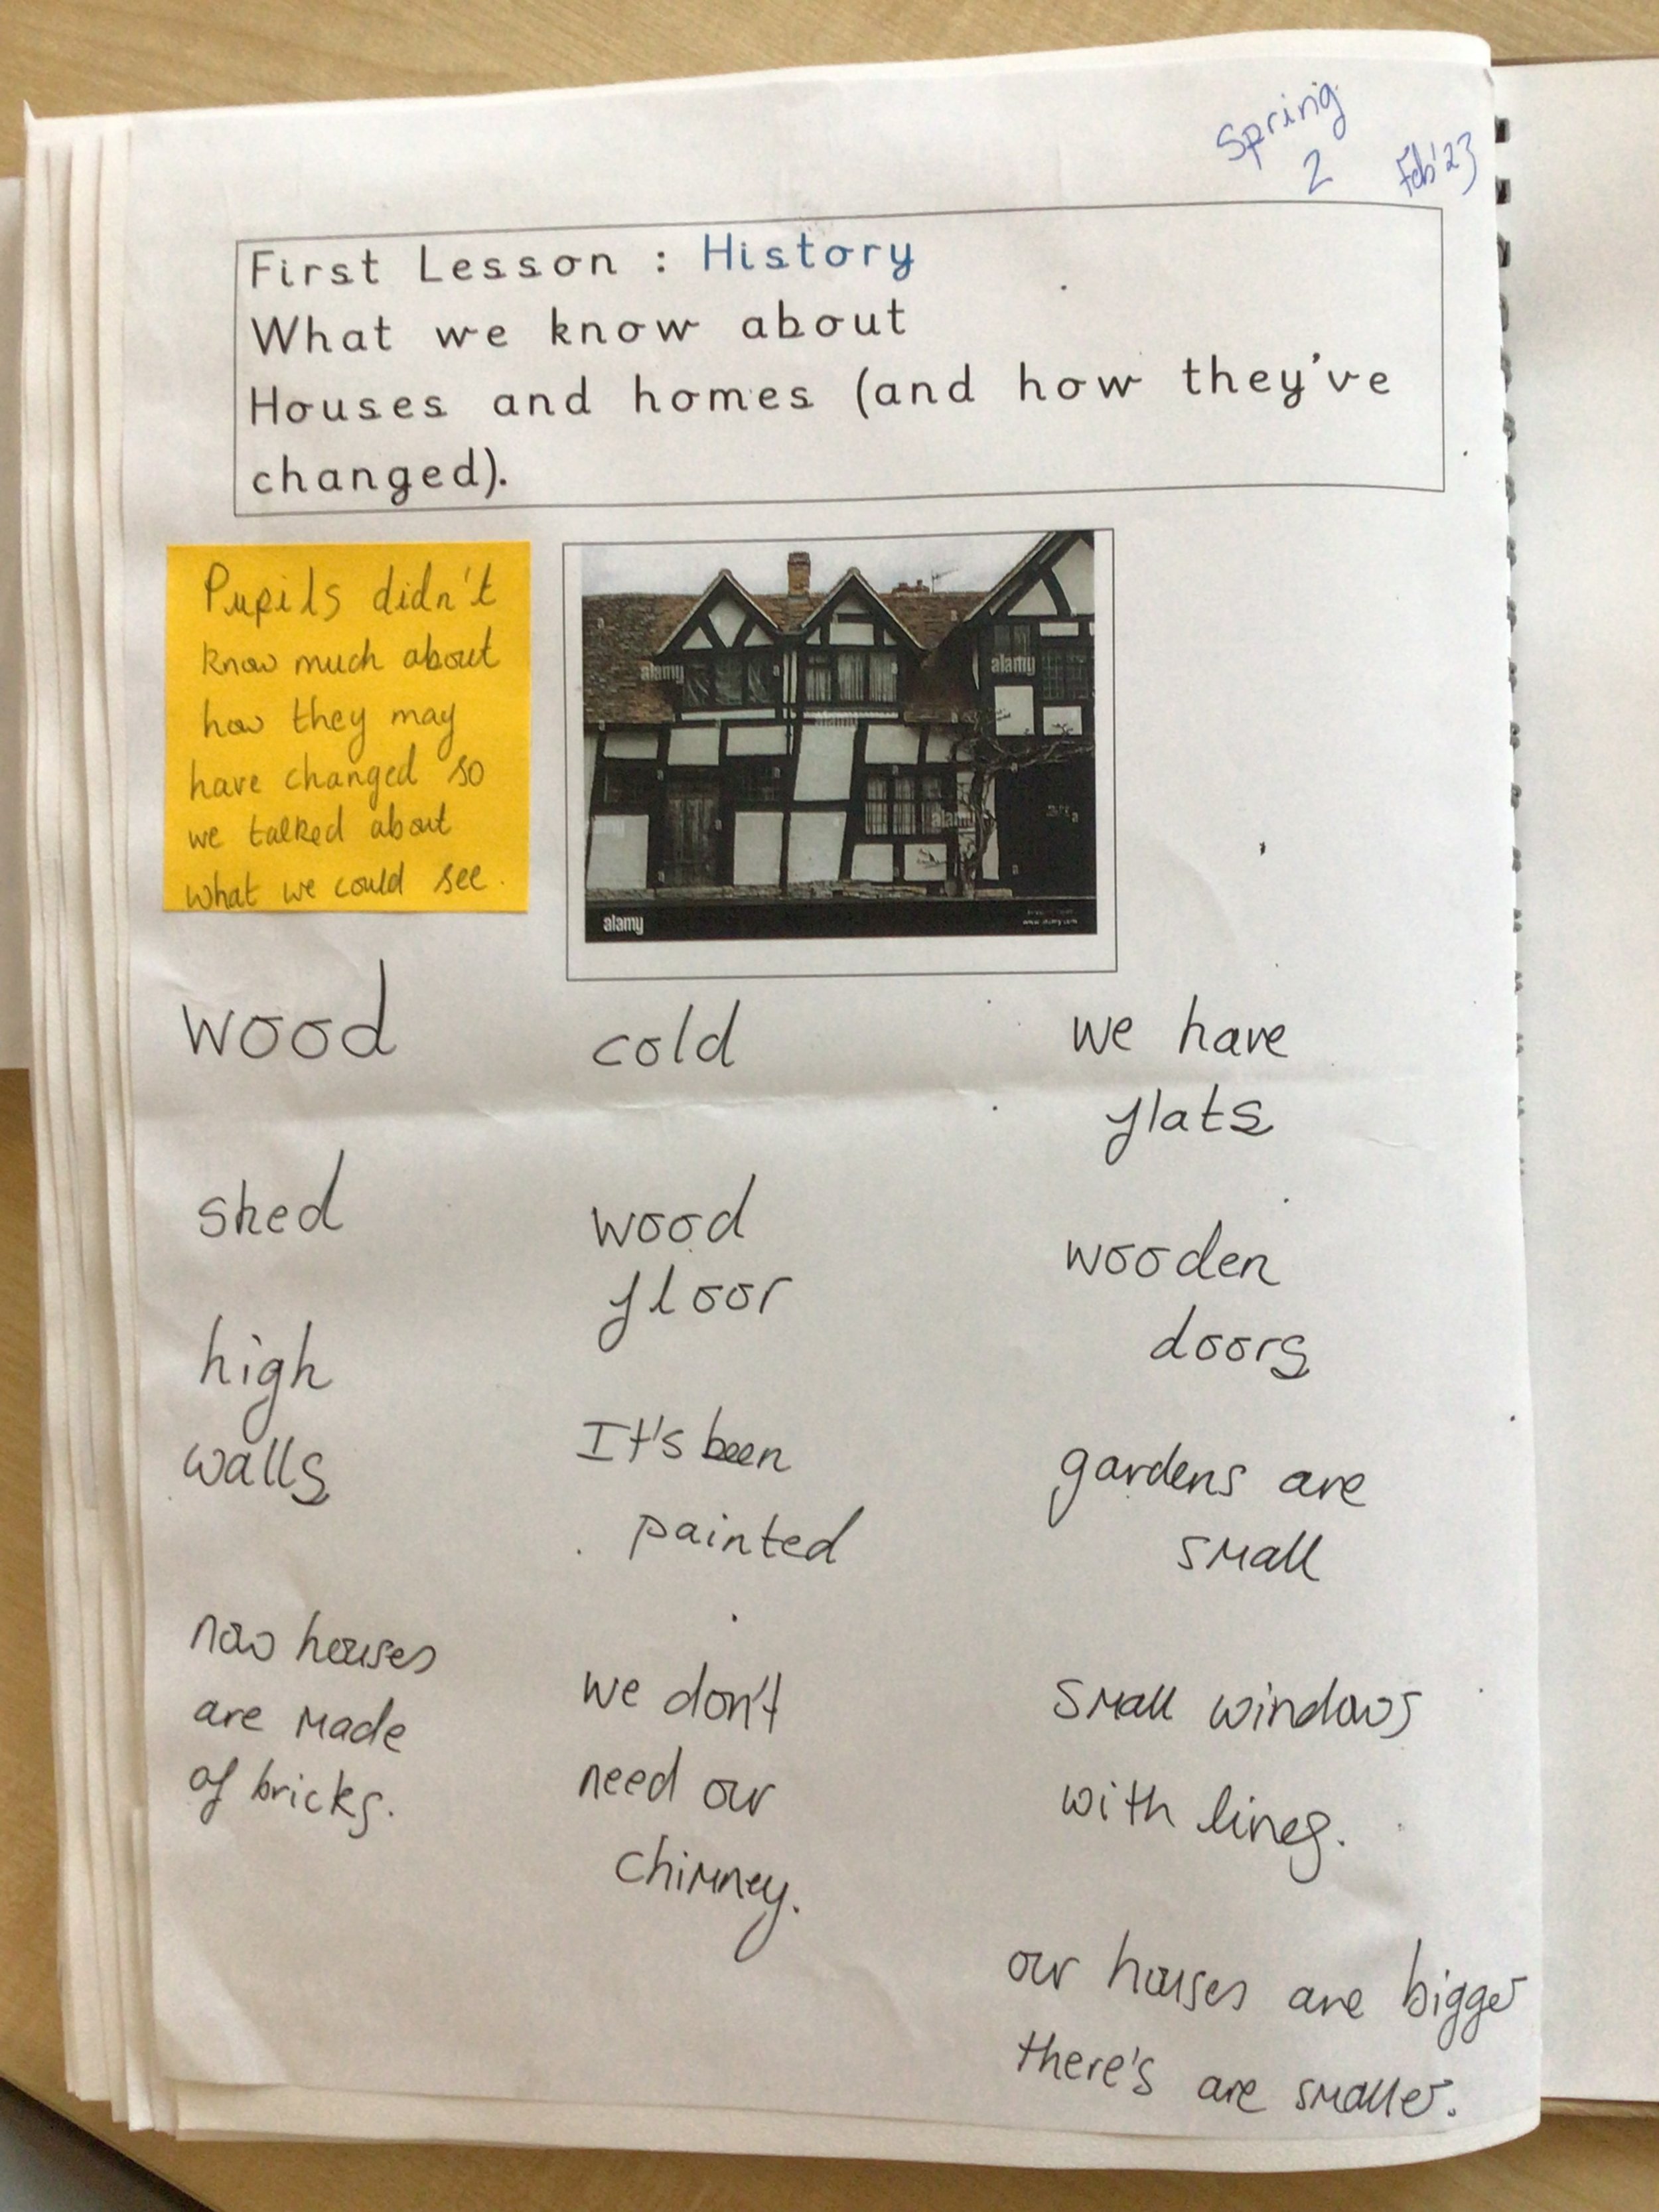 Spring
2 Feb'23
First Lesson : History
What we know about
Houses and homes (and how they've
changed).
Pupils didn't
know much about
how they may
have changed so
we talked about
what we could see.
alamy
alamy
alamy
alamy
alamy
wood
shed
high
walls
now houses
are made
of bricks.
cold
wood
floor
It's been
painted
we don't
need our
chimney.
we have
flats
wooden
doors
gardens are
small
small windows
with lines.
our houses are bigger
there's are smaller.